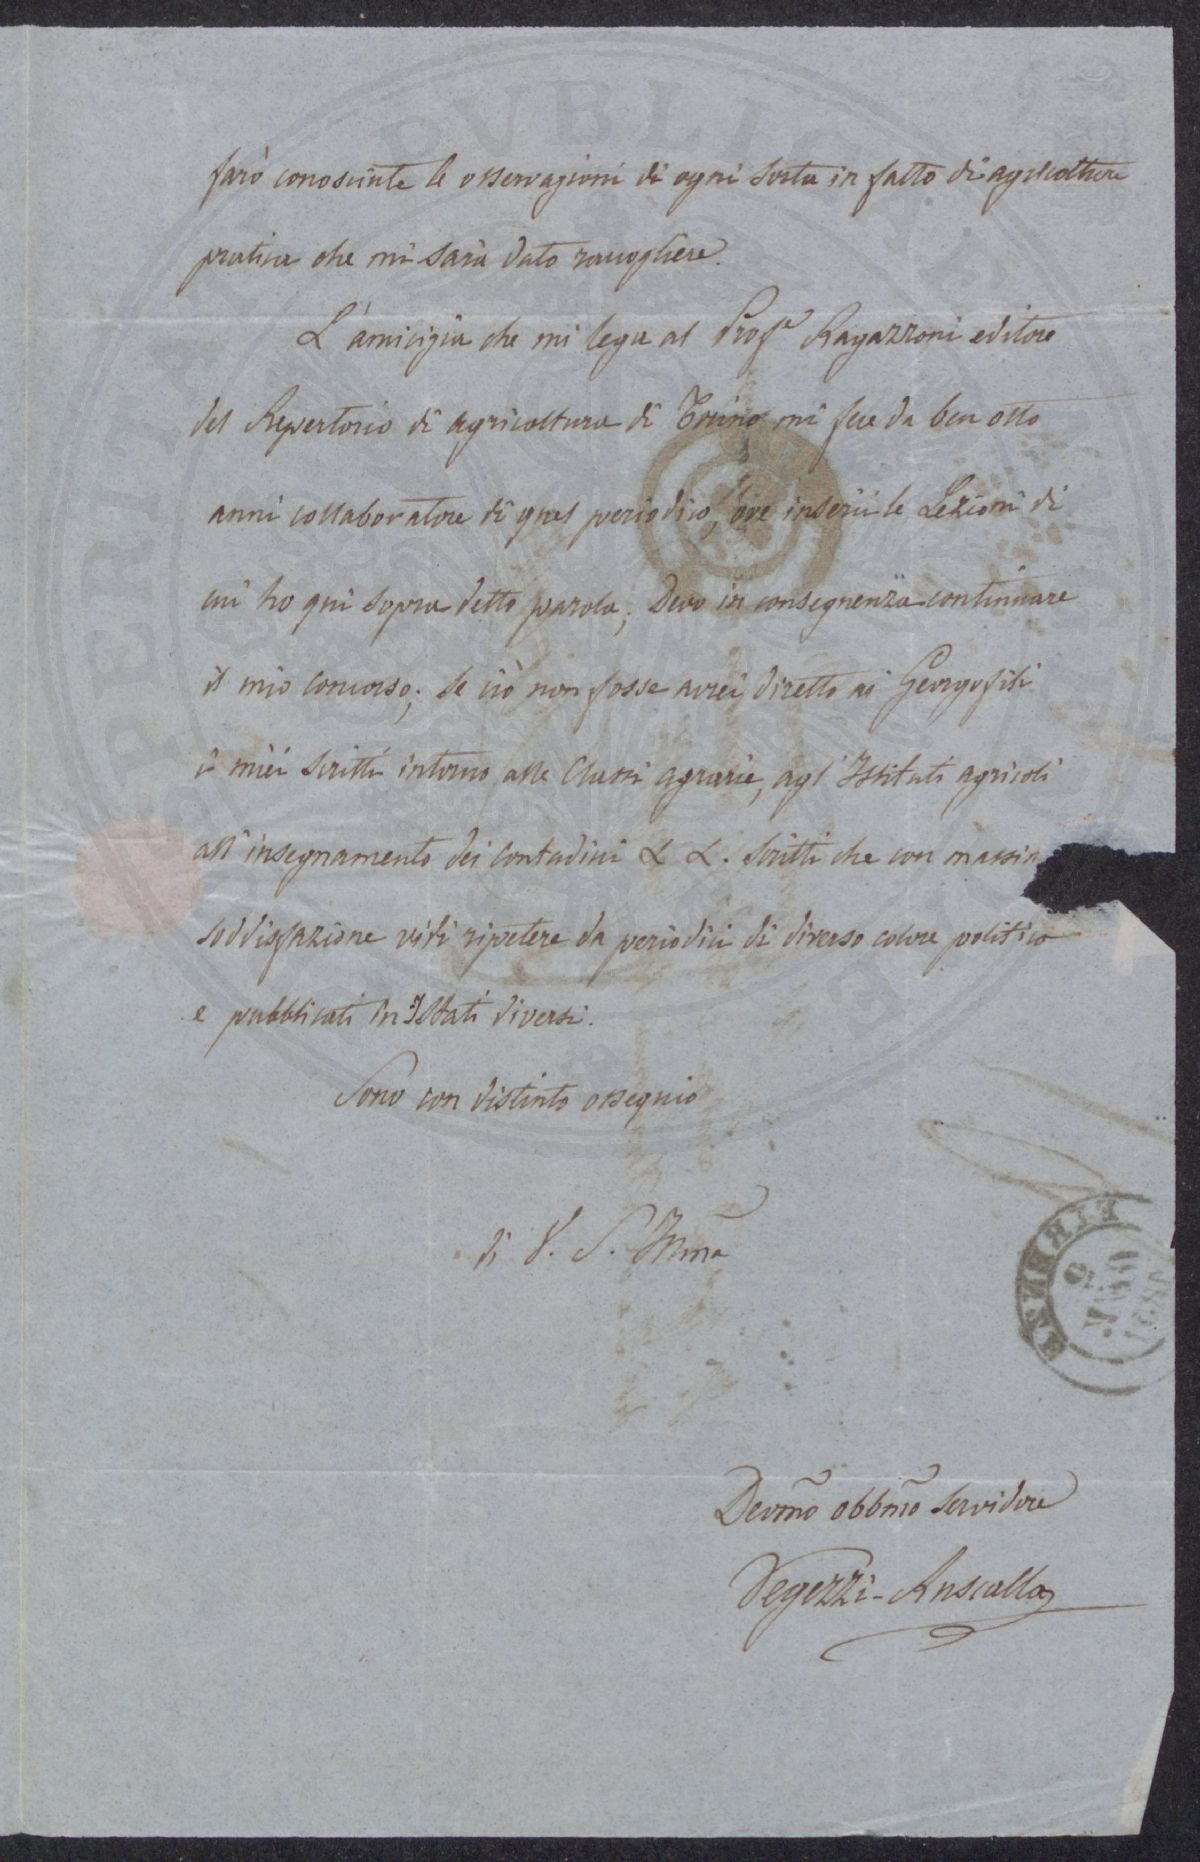 farò conosciute le osservazioni di ogni sorta in fatto di agricoltura
pratica che mi sarà dato raccogliere.
L'amicizia che mi lega al Profe Ragazzoni editore
del Repertorio di agricoltura di Torino mi fece da ben otto
anni collaboratore di quel periodico, ove inserii le Lezioni di
cui ho qui sopra detto parola; Devo in conseguenza continuare
il mio concorso; se ciò non fosse avrei diretto ai Georgofili
i miei scritti intorno alle Classi agrarie, agl'Istituti agricoli
all'insegnamento dei contadini & &. scritti che con massim
soddisfazione vidi ripetere da periodici di diverso colore politico
e pubblicati in Istati diversi.
Sono con distinto ossequio
di V. S. Illma
Devmo obbmo servidore
Vegezzi-Ruscalla
FIRENZE